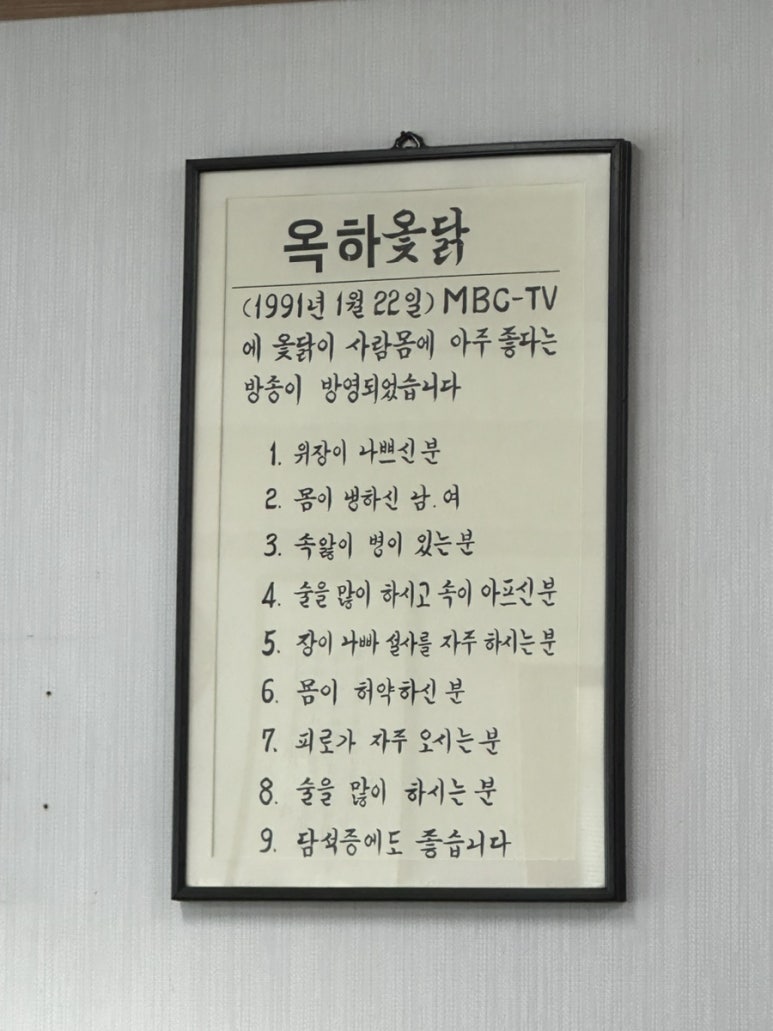 옥하옻닭
(1991년 1월 22일) MBC-TV
에 옻닭이 사람몸에 아주 좋다는
방종이 방영되었습니다
1. 위장이 나쁘신분
2. 몸이 냉하신 남.여
3. 속앓이 병이 있는분
4. 술을 많이 하시고 속이 아프신분
5. 장이 나빠 설사를 자주 하시는분
6. 몸이 허약하신 분
7. 피로가 자주 오시는 분
8. 술을 많이 하시는 분
9. 담석증에도 좋습니다